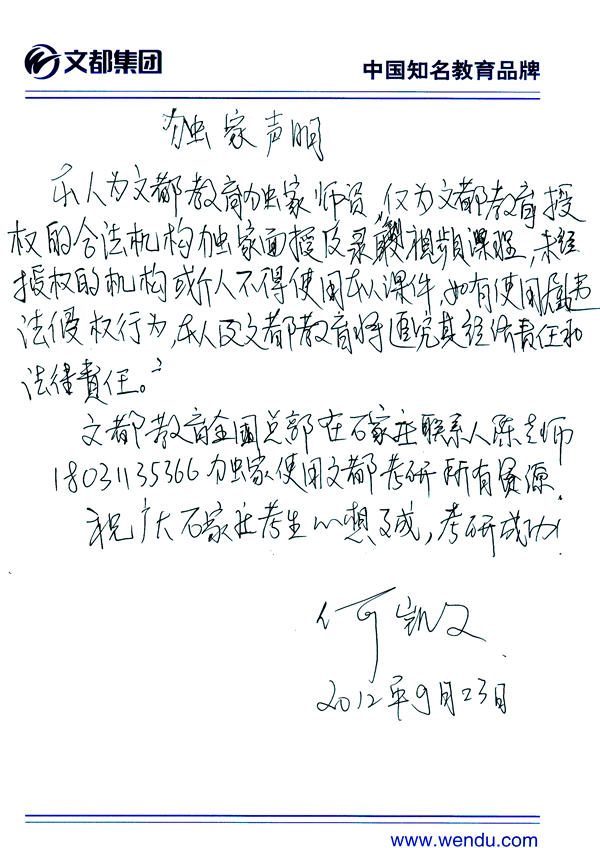 文都集团
中国知名教育品牌
独家声明
本人为文都教育独家师资,仅为文都教育授
权的合法机构独家面授及录制视频课程,未经
授权的机构或个人不得使用本人课件,如有使用属违
法侵权行为,本人及文都教育将追究其经济责任和
法律责任。
文都教育全国总部在石家庄联系人陈老师
18031135366独家使用文都考研所有资源.
祝广大石家庄考生心想事成,考研成功!
何凯文
2012年9月23日
www.wendu.com